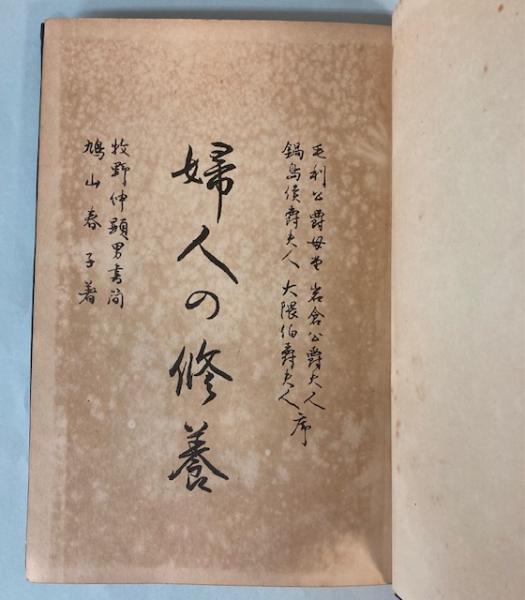 毛利公爵母堂 岩倉公爵夫人
鍋島侯爵夫人 大隈伯爵夫人序
婦人の修養
牧野伸顕男書簡
鳩山春子著